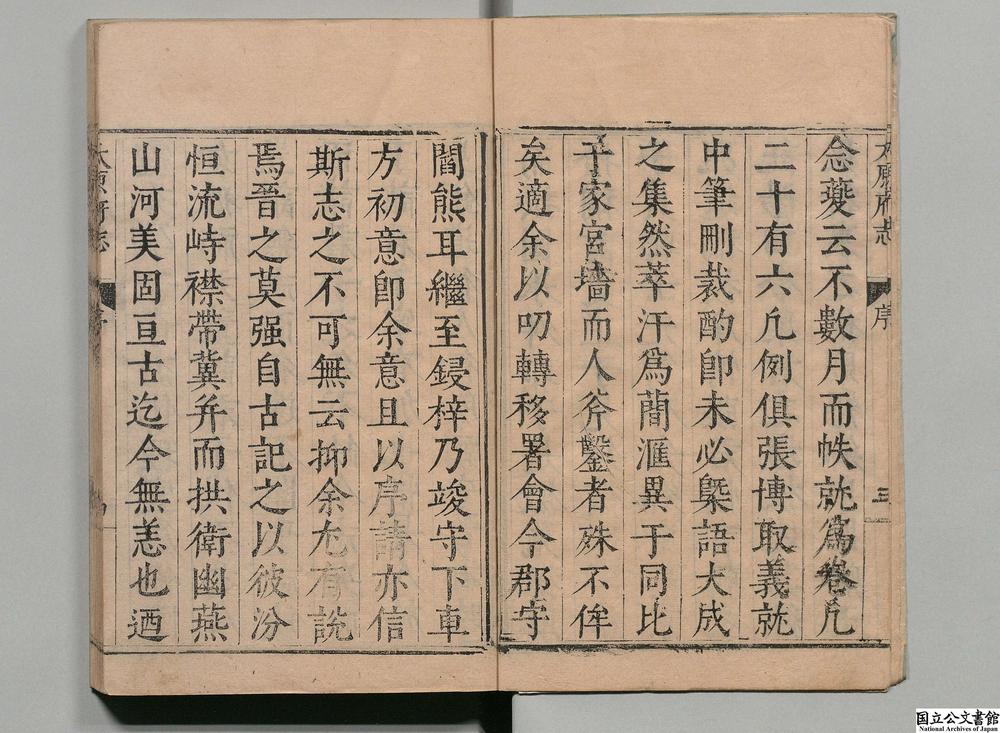 太原府志
序
三
念夔云不數月而帙就為卷凡
二十有六凡例俱張博取義就
中筆刪裁酌即未必槩語大成
之集然萃汗為蕳滙異于同比
千家宮墻而人斧鑿者殊不侔
矣適余以叨轉移署會今郡守
閻熊耳繼至鋟梓乃竣守下車
方初意即余意且以序請亦信
斯志之不可無云抑余尤有説
焉晉之莫强自古記之以彼汾
恒流峙襟帶冀并而拱衛幽燕
山河美固亘古迄今無恙也迺
太原府志
序
国立公文書館
National Archives of Japan